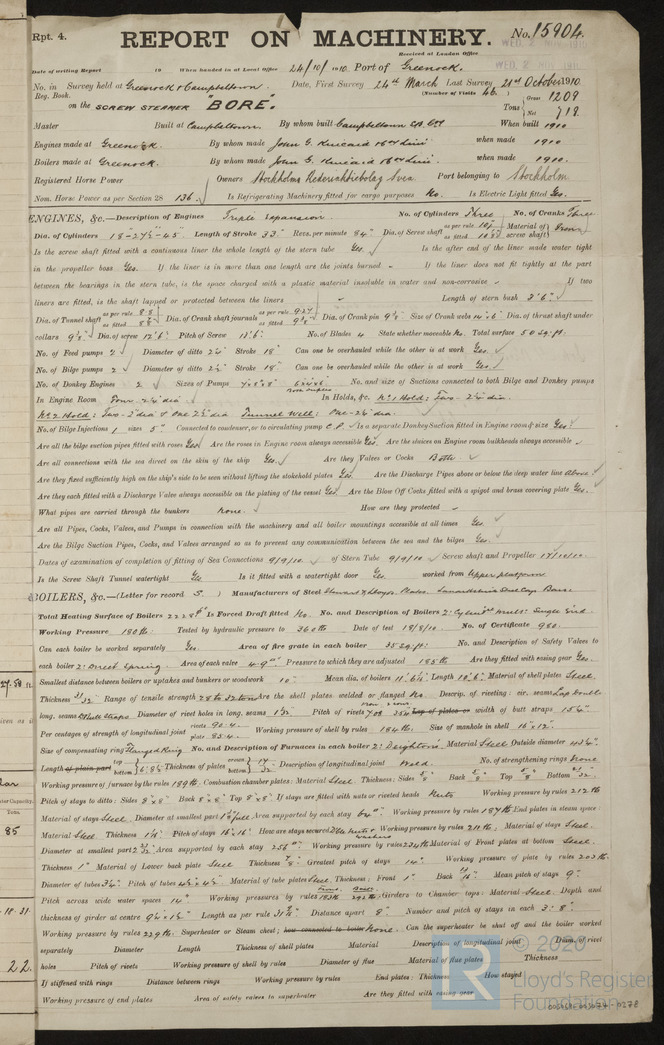 Rpt. 4.
REPORT ON MACHINERY.
No. 15904.
Received at London Office
WED. 2 NOV 1910
Date of writing Report 19 When handed in at Local Office 24/10/1910. Port of Greenock.
No. in Survey held at Greenock & Campbeltown. Date, First Survey 24th March Last Survey 21st October 1910.
Reg. Book. (Number of Visits 46)
on the SCREW STEAMER "BORE". Tons { Gross 1209 Net 719
Master Built at Campbeltown. By whom built Campbeltown S.B. Coy When built 1910
Engines made at Greenock. By whom made John G. Kincaid & Co Lim. when made 1910
Boilers made at Greenock. By whom made John G. Kincaid & Co Lim. when made 1910.
Registered Horse Power Owners Stockholms Rederiaktiebolag Svea. Port belonging to Stockholm
Nom. Horse Power as per Section 28 136 Is Refrigerating Machinery fitted for cargo purposes No. Is Electric Light fitted Yes.
ENGINES, &c.—Description of Engines Triple Expansion. No. of Cylinders Three No. of Cranks Three
Dia. of Cylinders 18-29½-45" Length of Stroke 33" Revs. per minute 84 Dia. of Screw shaft as per rule as fitted Material of screw shaft Iron
Is the screw shaft fitted with a continuous liner the whole length of the stern tube Yes. Is the after end of the liner made water tight
in the propeller boss Yes. If the liner is in more than one length are the joints burned - If the liner does not fit tightly at the part
between the bearings in the stern tube, is the space charged with a plastic material insoluble in water and non-corrosive - If two
liners are fitted, is the shaft lapped or protected between the liners - Length of stern bush 3' 6"
Dia. of Tunnel shaft as per rule 8.8 as fitted Dia. of Crank shaft journals as per rule 9.24 as fitted 9½" Dia. of Crank pin 9½" Size of Crank webs Dia. of thrust shaft under
collars 9½" Dia. of screw 12' 6" Pitch of Screw No. of Blades 4 State whether moveable No. Total surface 50 sq. ft.
No. of Feed pumps 2 Diameter of ditto Stroke 18" Can one be overhauled while the other is at work Yes.
No. of Bilge pumps 2 Diameter of ditto Stroke 18" Can one be overhauled while the other is at work Yes.
No. of Donkey Engines 2 Sizes of Pumps No. and size of Suctions connected to both Bilge and Donkey pumps
In Engine Room Four - 2½" dia. In Holds, &c. No 1 Hold: Two - 2½" dia.
No 2 Hold: Two - 2" dia & One 2½" dia Tunnel Well: One - 2½" dia.
No. of Bilge Injections 1 sizes 5" Connected to condenser, or to circulating pump C.P. Is a separate Donkey Suction fitted in Engine room & size Yes
Are all the bilge suction pipes fitted with roses Yes Are the roses in Engine room always accessible Yes. Are the sluices on Engine room bulkheads always accessible -
Are all connections with the sea direct on the skin of the ship Yes. Are they Valves or Cocks Both
Are they fixed sufficiently high on the ship's side to be seen without lifting the stokehold plates Yes. Are the Discharge Pipes above or below the deep water line Above.
Are they each fitted with a Discharge Valve always accessible on the plating of the vessel Yes. Are the Blow Off Cocks fitted with a spigot and brass covering plate Yes.
What pipes are carried through the bunkers None. How are they protected -
Are all Pipes, Cocks, Valves, and Pumps in connection with the machinery and all boiler mountings accessible at all times Yes.
Are the Bilge Suction Pipes, Cocks, and Valves arranged so as to prevent any communication between the sea and the bilges Yes.
Dates of examination of completion of fitting of Sea Connections 9/9/10. of Stern Tube 9/9/10 Screw shaft and Propeller 17/10/10.
Is the Screw Shaft Tunnel watertight Yes Is it fitted with a watertight door Yes. worked from Upper platform
BOILERS, &c.—(Letter for record S. ) Manufacturers of Steel
Total Heating Surface of Boilers 2228 Is Forced Draft fitted No. No. and Description of Boilers 2: Cylind. Mult: Single End.
Working Pressure 180 lb. Tested by hydraulic pressure to 360 lb Date of test 18/8/10. No. of Certificate 980.
Can each boiler be worked separately Yes. Area of fire grate in each boiler 35 sq. ft. No. and Description of Safety Valves to
each boiler 2: Direct Spring. Area of each valve Pressure to which they are adjusted 185 lb Are they fitted with easing gear Yes.
Smallest distance between boilers or uptakes and bunkers or woodwork 10" Mean dia. of boilers Length 10' 6" Material of shell plates Steel.
Thickness 31/32 Range of tensile strength 28 to 32 tons Are the shell plates welded or flanged No. Descrip. of riveting: cir. seams Lap
long. seams Diameter of rivet holes in long. seams Pitch of rivets lap of plates or width of butt straps 15¾"
Per centages of strength of longitudinal joint rivets 90.4. plate 85.4. Working pressure of shell by rules 184 lb. Size of manhole in shell 16" x 12".
Size of compensating ring Flanged Ring No. and Description of Furnaces in each boiler 2: Deighton's Material Steel Outside diameter
Length of plain part top bottom Thickness of plates crown bottom Description of longitudinal joint Weld. No. of strengthening rings None
Working pressure of furnace by the rules 189 lb. Combustion chamber plates: Material Steel. Thickness: Sides Back Top Bottom
Pitch of stays to ditto: Sides 8" x 8" Back 8" x 8" Top 8" x 8" If stays are fitted with nuts or riveted heads Nuts Working pressure by rules 212 lb
Material of stays Steel. Diameter at smallest part Area supported by each stay 64 Working pressure by rules End plates in steam space:
Material Steel. Thickness Pitch of stays How are stays secured Working pressure by rules 211 lb; Material of stays Steel.
Diameter at smallest part Area supported by each stay 256 Working pressure by rules Material of Front plates at bottom Steel.
Thickness 1" Material of Lower back plate Steel Thickness Greatest pitch of stays 14" Working pressure of plate by rules
Diameter of tubes 3¼" Pitch of tubes Material of tube plates Steel. Thickness: Front 1" Back Mean pitch of stays 9"
Pitch across wide water spaces 14" Working pressures by rules Girders to Chamber tops: Material Steel. Depth and
thickness of girder at centre Length as per rule Distance apart 8" Number and pitch of stays in each 3: 8"
Working pressure by rules 229 lb. Superheater or Steam chest; how connected to boiler None. Can the superheater be shut off and the boiler worked
separately Diameter Length Thickness of shell plates Material Description of longitudinal joint Diam. of rivet
holes Pitch of rivets Working pressure of shell by rules Diameter of flue Material of flue plates Thickness
If stiffened with rings Distance between rings Working pressure by rules End plates: Thickness How stayed
Working pressure of end plates Area of safety valves to superheater Are they fitted with easing gear
© 2020
LR
Lloyd's Register
Foundation
85
22.